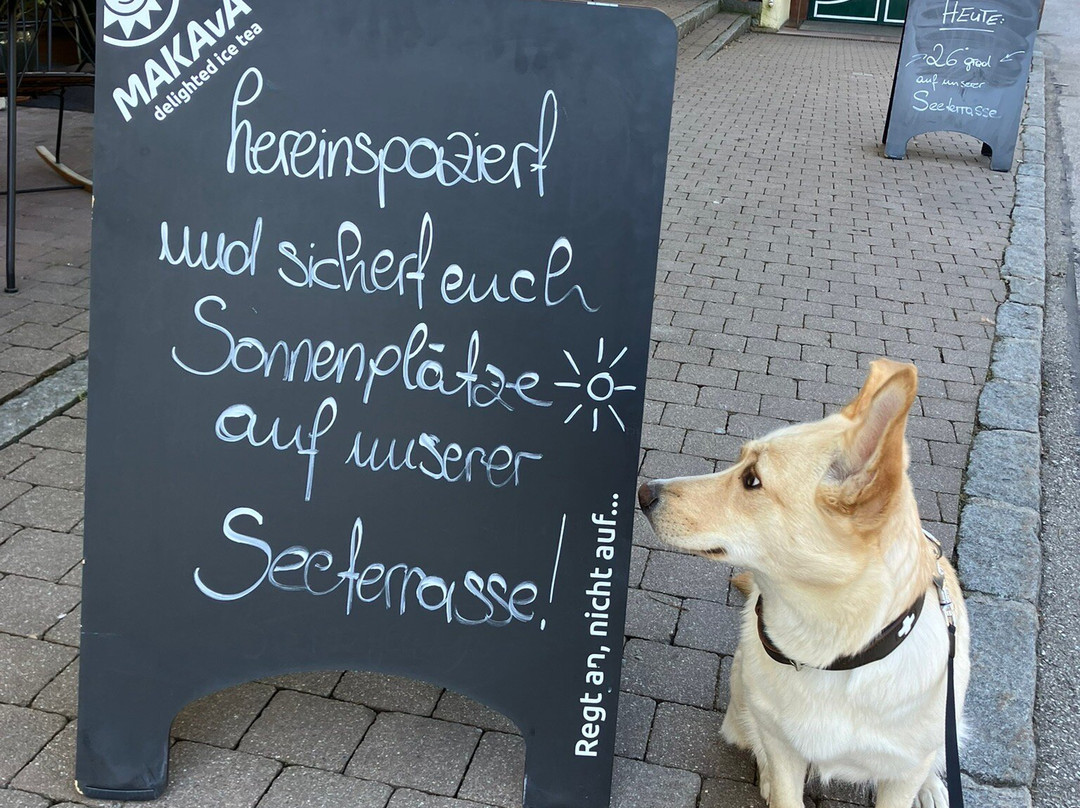 MAKAvA
delighted ice tea
hereinspaziert
und sichert euch
Sonnenplätze
auf unserer
Seeterrasse!
Regt an, nicht auf...
HEUTE:
26 grad
auf unserer
Seeterrasse